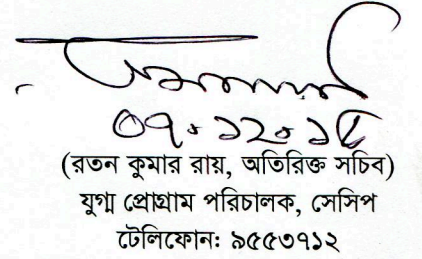 ০৭.১২.১৫
(রতন কুমার রায়, অতিরিক্ত সচিব)
যুগ্ম প্রোগ্রাম পরিচালক, সেসিপ
টেলিফোন: ৯৫৫৩৭১২